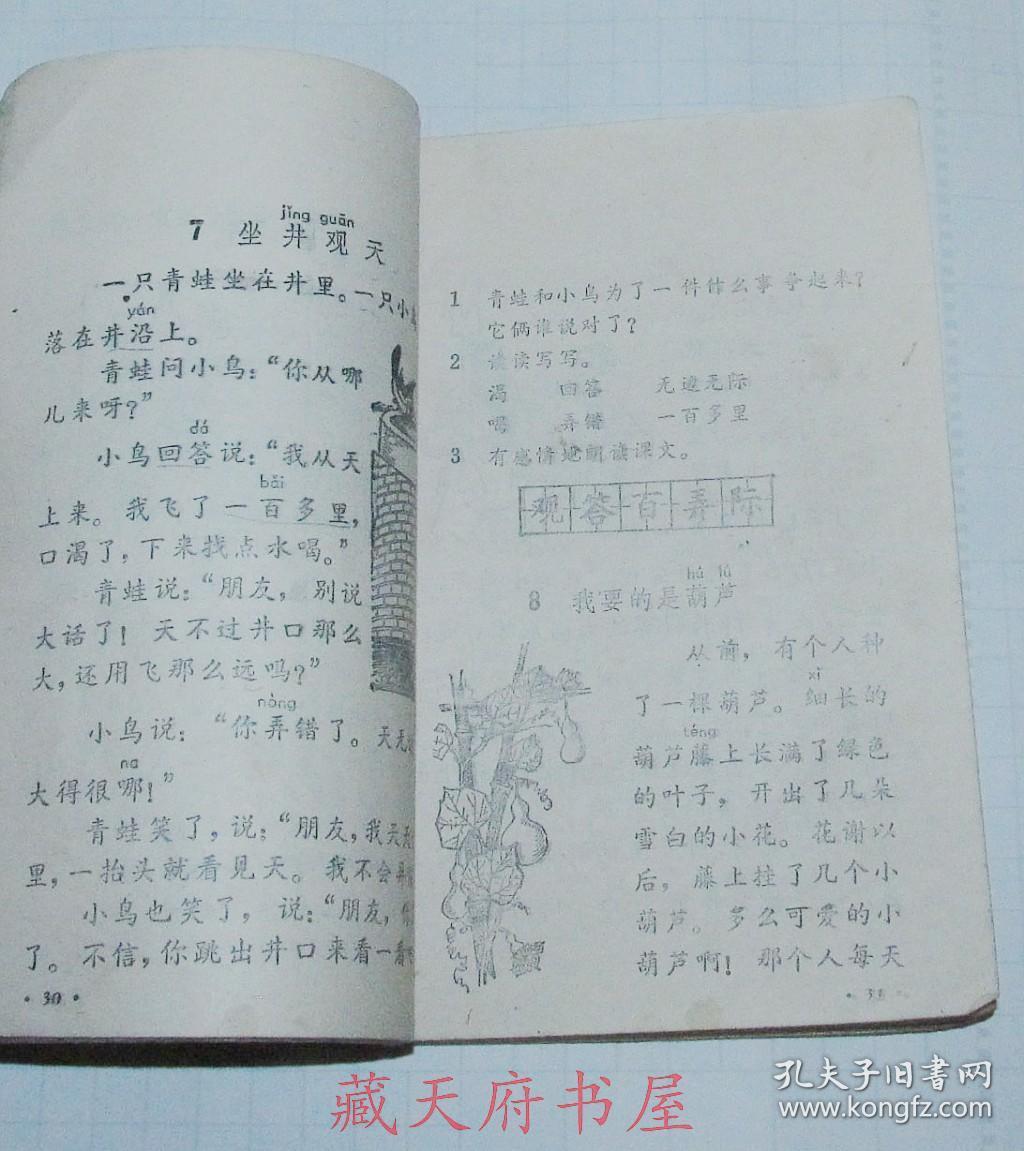 jǐng guān
7 坐井观天
一只青蛙坐在井里。一只小
yán
落在井沿上。
青蛙问小鸟：“你从哪
儿来呀？”
dá
小鸟回答说：“我从天
bǎi
上来。我飞了一百多里，
口渴了，下来找点水喝。”
青蛙说：“朋友，别说
大话了！天不过井口那么
大，还用飞那么远吗？”
nòng
小鸟说：“你弄错了。天无
na
大得很哪！”
青蛙笑了，说：“朋友，我天天
里，一抬头就看见天。我不会弄
小鸟也笑了，说：“朋友，你
了。不信，你跳出井口来看一看
·30·
1 青蛙和小鸟为了一件什么事争起来？
它俩谁说对了？
2 读读写写。
渴 回答 无边无际
喝 弄错 一百多里
3 有感情地朗读课文。
观答百弄际
hú lú
8 我要的是葫芦
从前，有个人种
xì
了一棵葫芦。细长的
téng
葫芦藤上长满了绿色
的叶子，开出了几朵
雪白的小花。花谢以
后，藤上挂了几个小
葫芦。多么可爱的小
葫芦啊！那个人每天
·31·
藏天府书屋
孔夫子旧书网
www.kongfz.com